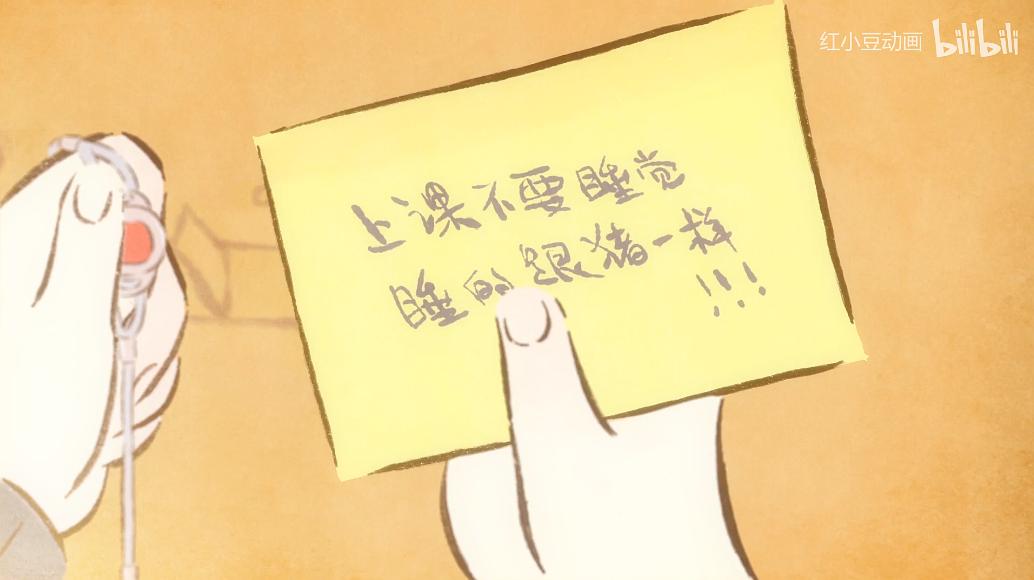 红小豆动画 bilibili
上课不要睡觉
睡的跟猪一样
!!!